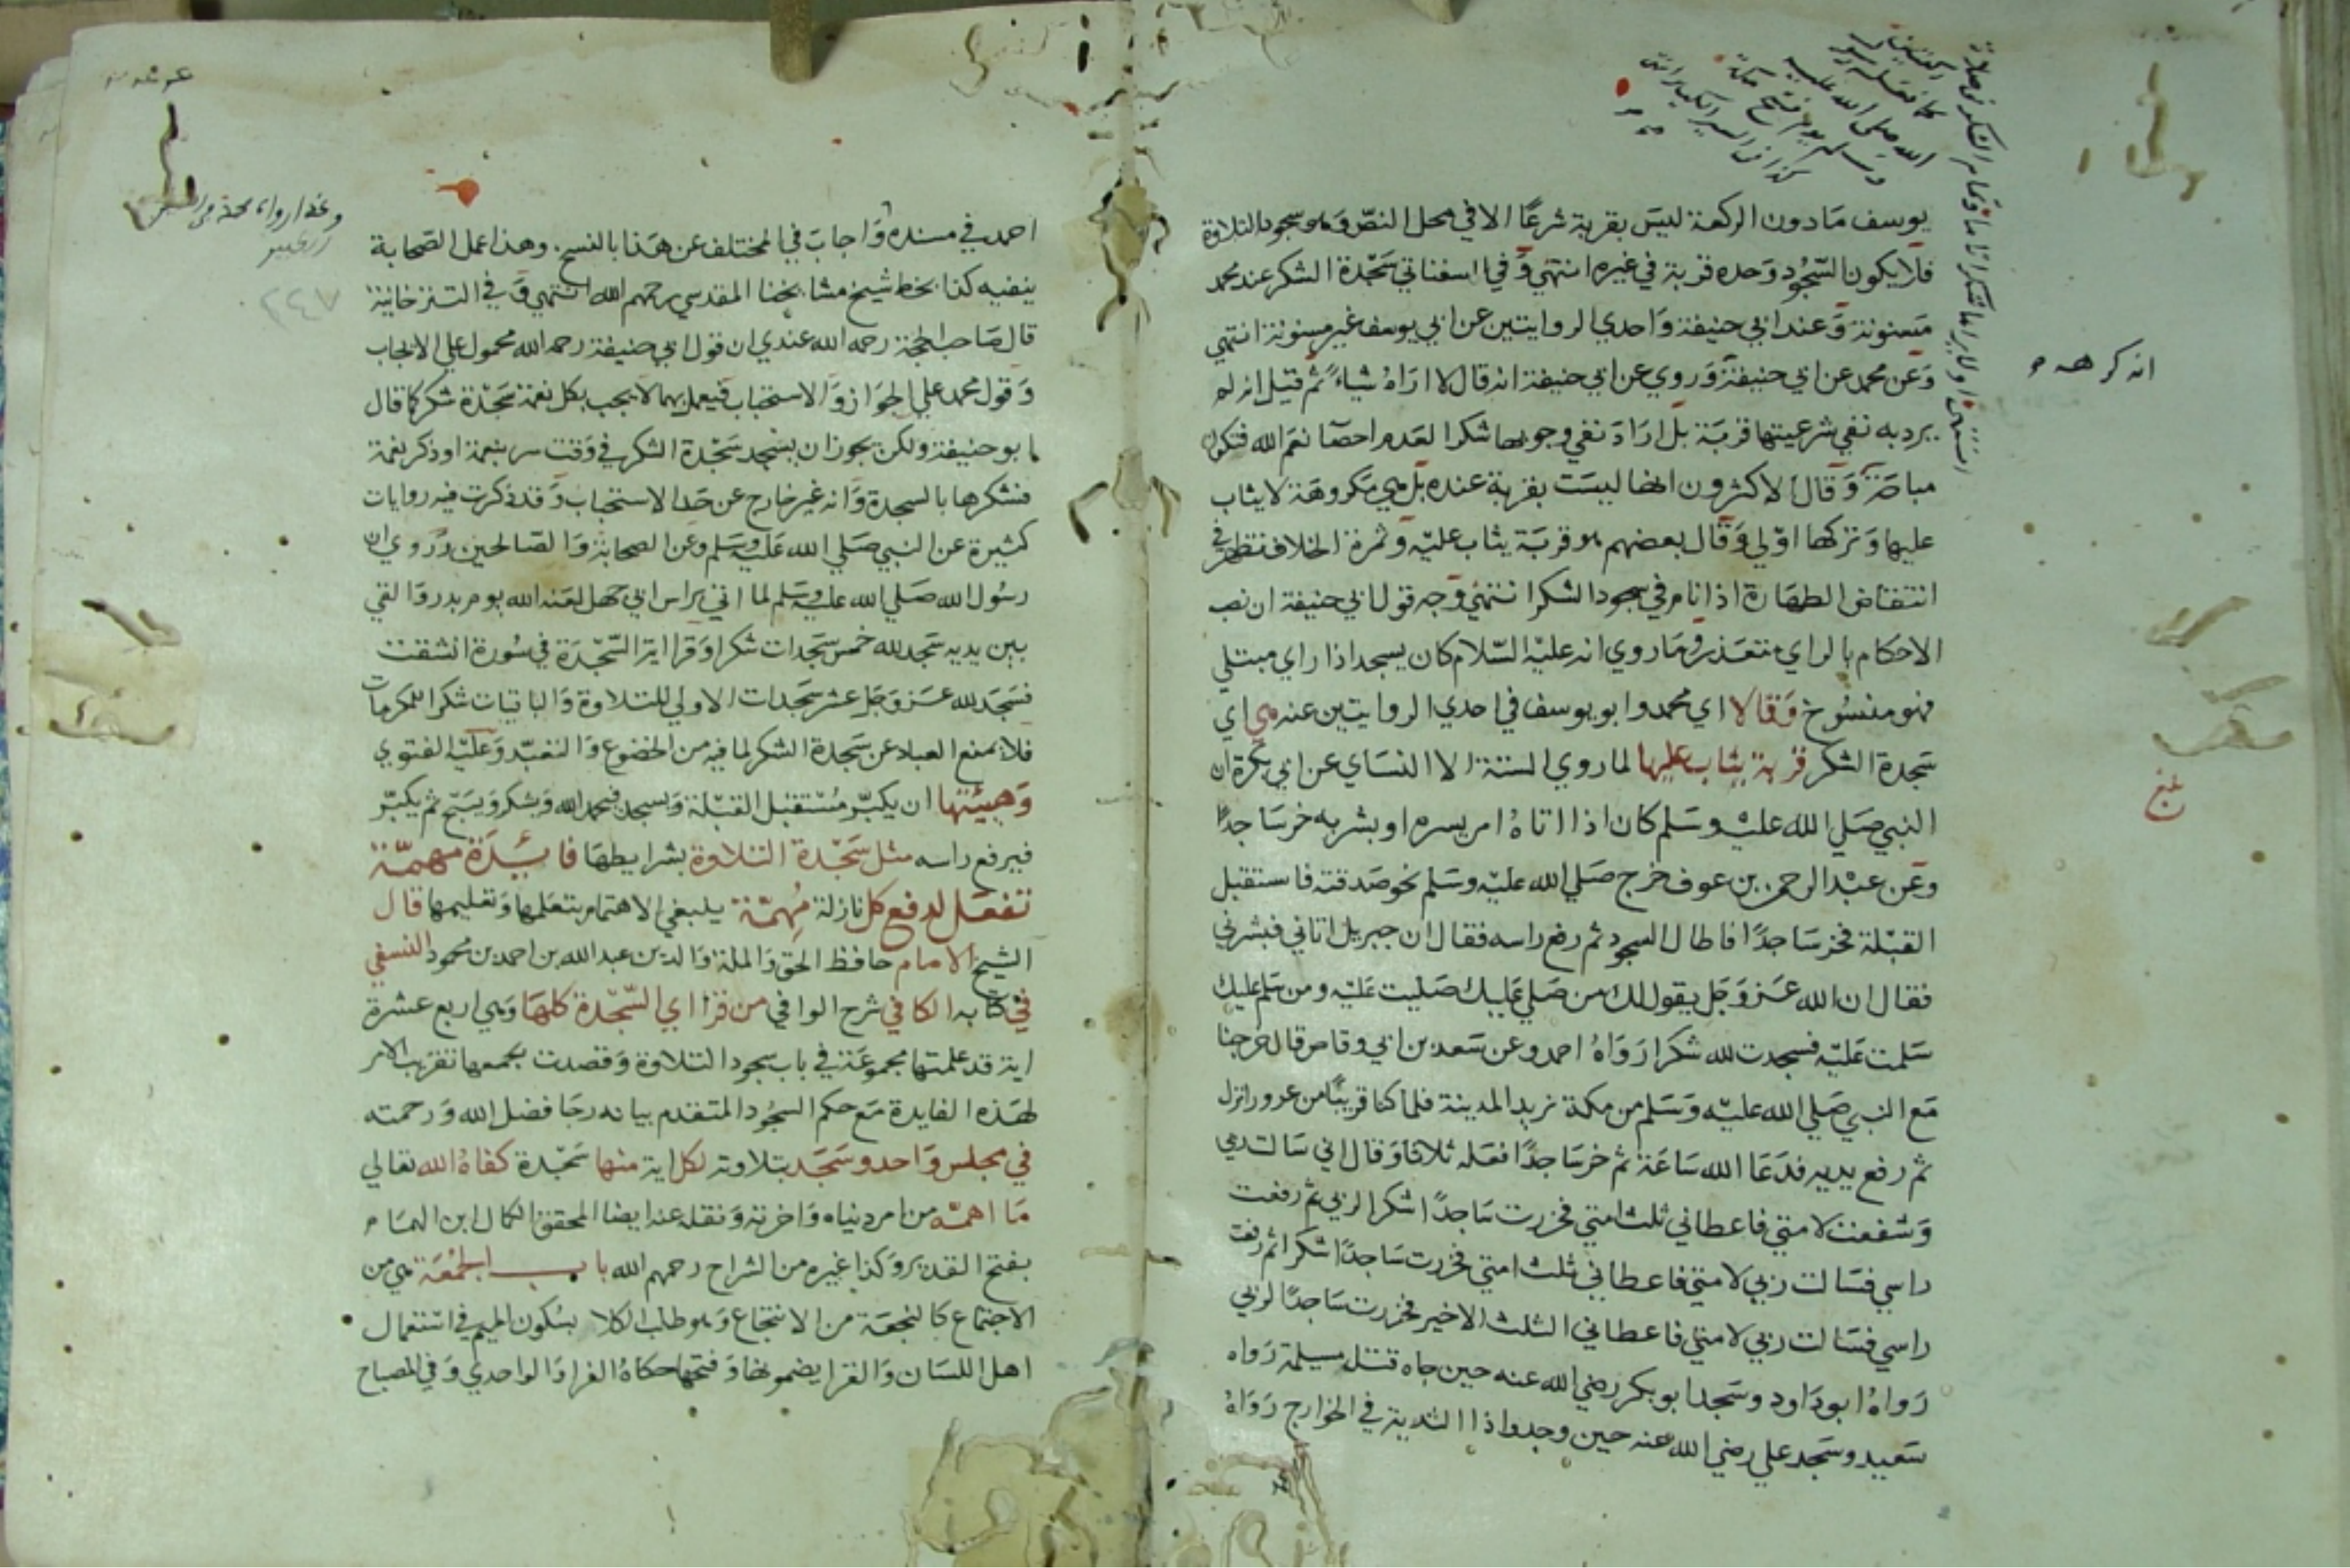 يوسف مادون الركعة ليس بقربة شرعًا الا في محل النص وهو سجود التلاوة
فلا يكون السجود وحده قربة في غيره انتهي وفي السغناقي سجدة الشكر عند محمد
مسنونة وعند ابي حنيفة واحدي الروايتين عن ابي يوسف غير مسنونة انتهي
وعن محمد عن ابي حنيفة وروي عن ابي حنيفة انه قال لا اراه شياء ثم قيل انه لم
يرد به نفي شرعيتها قربة بل اراد نفي وجوبها شكرا لعدم احصا نعم الله فتكون
مباحة وقال الاكثرون انها ليست بقربة عنده بل هي مكروهة لا يثاب
عليها وتركها اولي وقال بعضهم هو قربة يثاب عليه وثمرة الخلاف تظهر في
انتقاض الطهارة اذا نام في سجود الشكر انتهي وجه قول ابي حنيفة ان نصب
الاحكام بالراي متعذر وما روي انه عليه السلام كان يسجد اذا راي مبتلي
فهو منسوخ وقالا اي محمد وابو يوسف في احدي الروايتين عنه هي اي
سجدة الشكر قربة يثاب عليها لما روي الستة الا النساي عن ابي بكرة ان
النبي صلي الله عليه وسلم كان اذا اتاه امر يسره او بشر به خر ساجدًا
وعن عبد الرحمن بن عوف خرج صلي الله عليه وسلم نحو صدقته فاستقبل
القبلة فخر ساجدًا فاطال السجود ثم رفع راسه فقال ان جبريل اتاني فبشرني
فقال ان الله عز وجل يقول لك من صلي عليك صليت عليه ومن سلم عليك
سلمت عليه فسجدت لله شكرا رواه احمد وعن سعد بن ابي وقاص قال خرجنا
مع النبي صلي الله عليه وسلم من مكة نريد المدينة فلما كنا قريبًا من عزور انزل
ثم رفع يديه فدعا الله ساعة ثم خر ساجدًا فعله ثلاثا وقال اني سالت ربي
وشفعت لامتي فاعطاني ثلث امتي فخررت ساجدًا شكرا لربي ثم رفعت
راسي فسالت ربي لامتي فاعطاني ثلث امتي فخررت ساجدًا شكرا ثم رفعت
راسي فسالت ربي لامتي فاعطاني الثلث الاخير فخررت ساجدًا لربي
رواه ابو داود وسجد ابو بكر رضي الله عنه حين جاه قتل مسيلمة رواه
سعيد وسجد علي رضي الله عنه حين وجدوا ذا الثدية في الخوارج رواه
انه كرهه م
بلغ
كما فعله رسول
الله صلى الله عليه
وسلم يوم فتح مكة
كذا في السير الكبير انتهى
احمد في مسنده واجاب في المختلف عن هذا بالنسخ. وهذا عمل الصحابة
ينفيه كذا بخط شيخ مشايخنا المقدسي رحمهم الله انتهي وفي التترخانية
قال صاحب الحجة رحمه الله عندي ان قول ابي حنيفة رحمه الله محمول علي الايجاب
وقول محمد علي الجواز والاستحباب فيعمل بهما لا يجب بكل نعمة سجدة شكر كما قال
ابو حنيفة ولكن يجوز ان يسجد سجدة الشكر في وقت سر بنعمة او ذكر نعمة
فشكرها بالسجدة وانه غير خارج عن حد الاستحباب وقد ذكرت فيه روايات
كثيرة عن النبي صلي الله عليه وسلم وعن الصحابة والصالحين وروي ان
رسول الله صلي الله عليه وسلم لما اتي براس ابي جهل لعنه الله يوم بدر والقي
بين يديه سجد لله خمس سجدات شكرا وقرا اية السجدة في سورة انشقت
فسجد لله عز وجل عشر سجدات الاولي للتلاوة والباقيات شكرا للمكرمات
فلا يمنع العباد عن سجدة الشكر لما فيه من الخضوع والتعبد وعليه الفتوي
وهيئتها ان يكبر مستقبل القبلة ويسجد فيحمد الله ويشكر ويسبح ثم يكبر
فيرفع راسه مثل سجدة التلاوة بشرايطها فايدة مهمة
تفعل لدفع كل نازلة مهمة ينبغي الاهتمام بتعلمها وتعليمها قال
الشيخ الامام حافظ الحق والملة والدين عبد الله بن احمد بن محمود النسفي
في كتابه الكافي شرح الوافي من قرا اي السجدة كلها وهي اربع عشرة
اية قد علمتها مجموعة في باب سجود التلاوة وقصدت بجمعها تقريب الامر
لهذه الفايدة مع حكم السجود المتقدم بيانه رجا فضل الله ورحمته
في مجلس واحد وسجد بتلاوته لكل اية منها سجدة كفاه الله تعالي
ما اهمه من امر دنياه واخرته ونقله عنه ايضا المحقق الكمال ابن الهمام
بفتح القدير وكذا غيره من الشراح رحمهم الله باب الجمعة هي من
الاجتماع كالنجعة من الانتجاع وهو طلب الكلا بسكون الميم في استعمال
اهل اللسان والقرا يضمونها وفتحها حكاه الفرا والواحدي وفي المصباح
٢٤٧